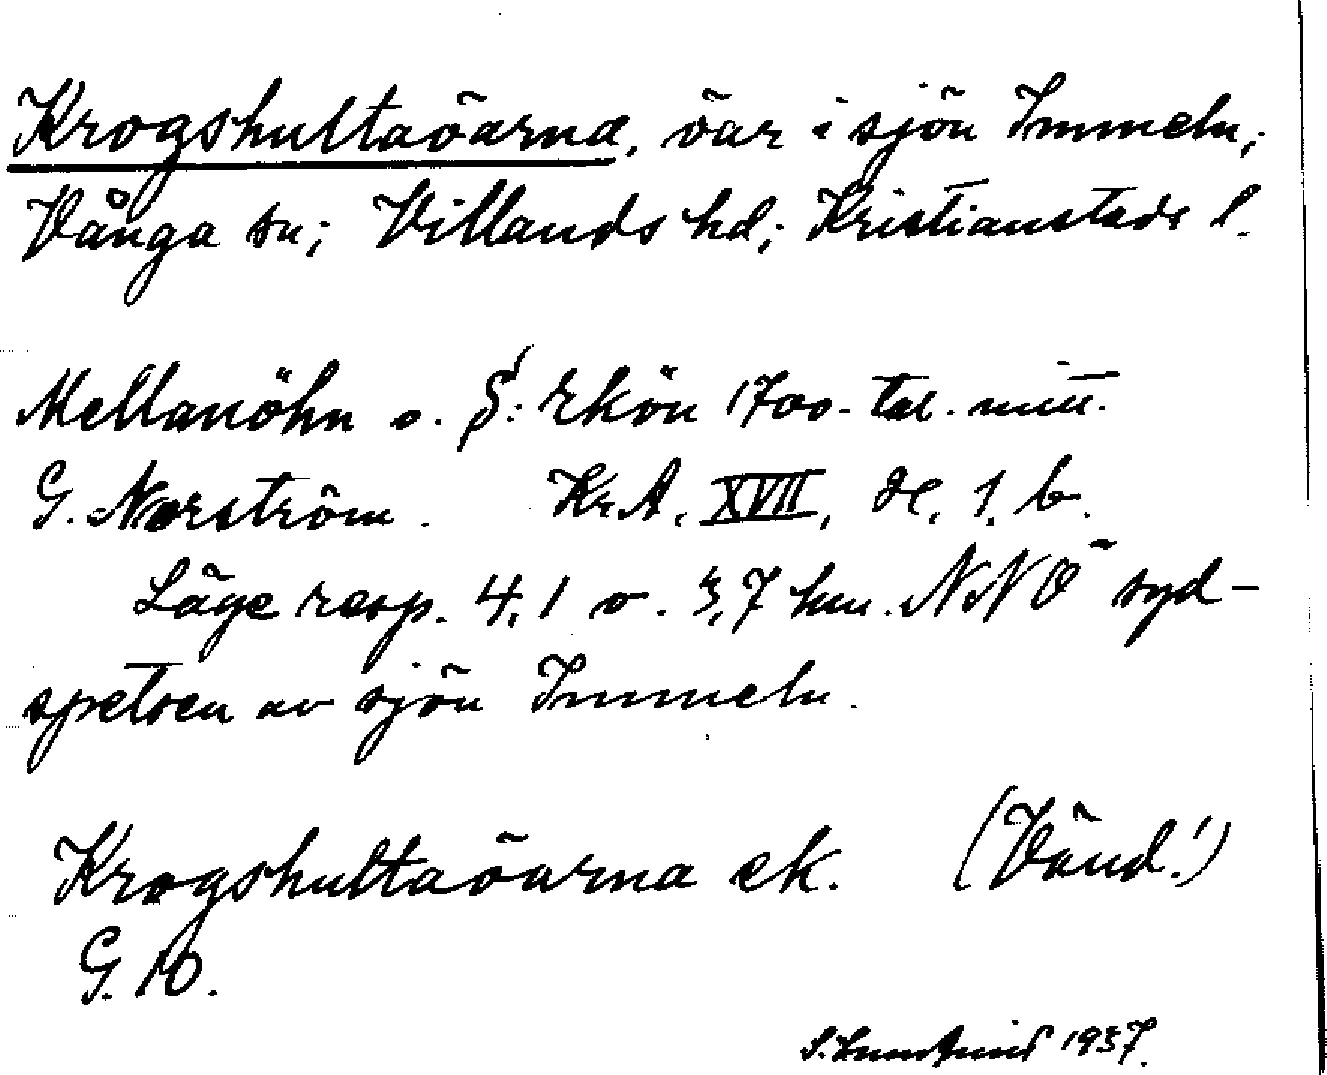 Krogshultaöarna, öar i sjön Immeln;
Vånga sn; Villands hd; Kristianstads l.
Mellanöhn o. §: rkön 1700-tal. mitt.
G. Norström. Kr.A. XVII, Sk. 1. b.
Läge resp. 4,1 o. 3,7 km. NNÖ syd-
spetsen av sjön Immeln.
Krogshultaöarna ek. (Vänd!)
G. 10.
1937.